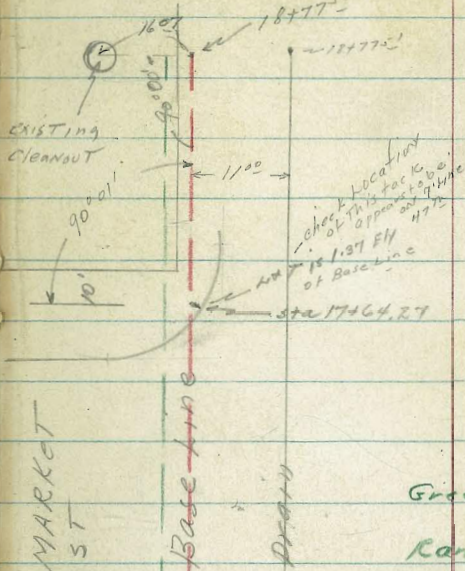 16.07
18+77
18+77
90°00'
existing
Cleanout
90°01'
11.00
check Location
of This tack
appears to be
on
10'
is 1.37 
of Base Line
sta 17+64.27
MARKET
ST
Base Line
Drain
Gre
Ran